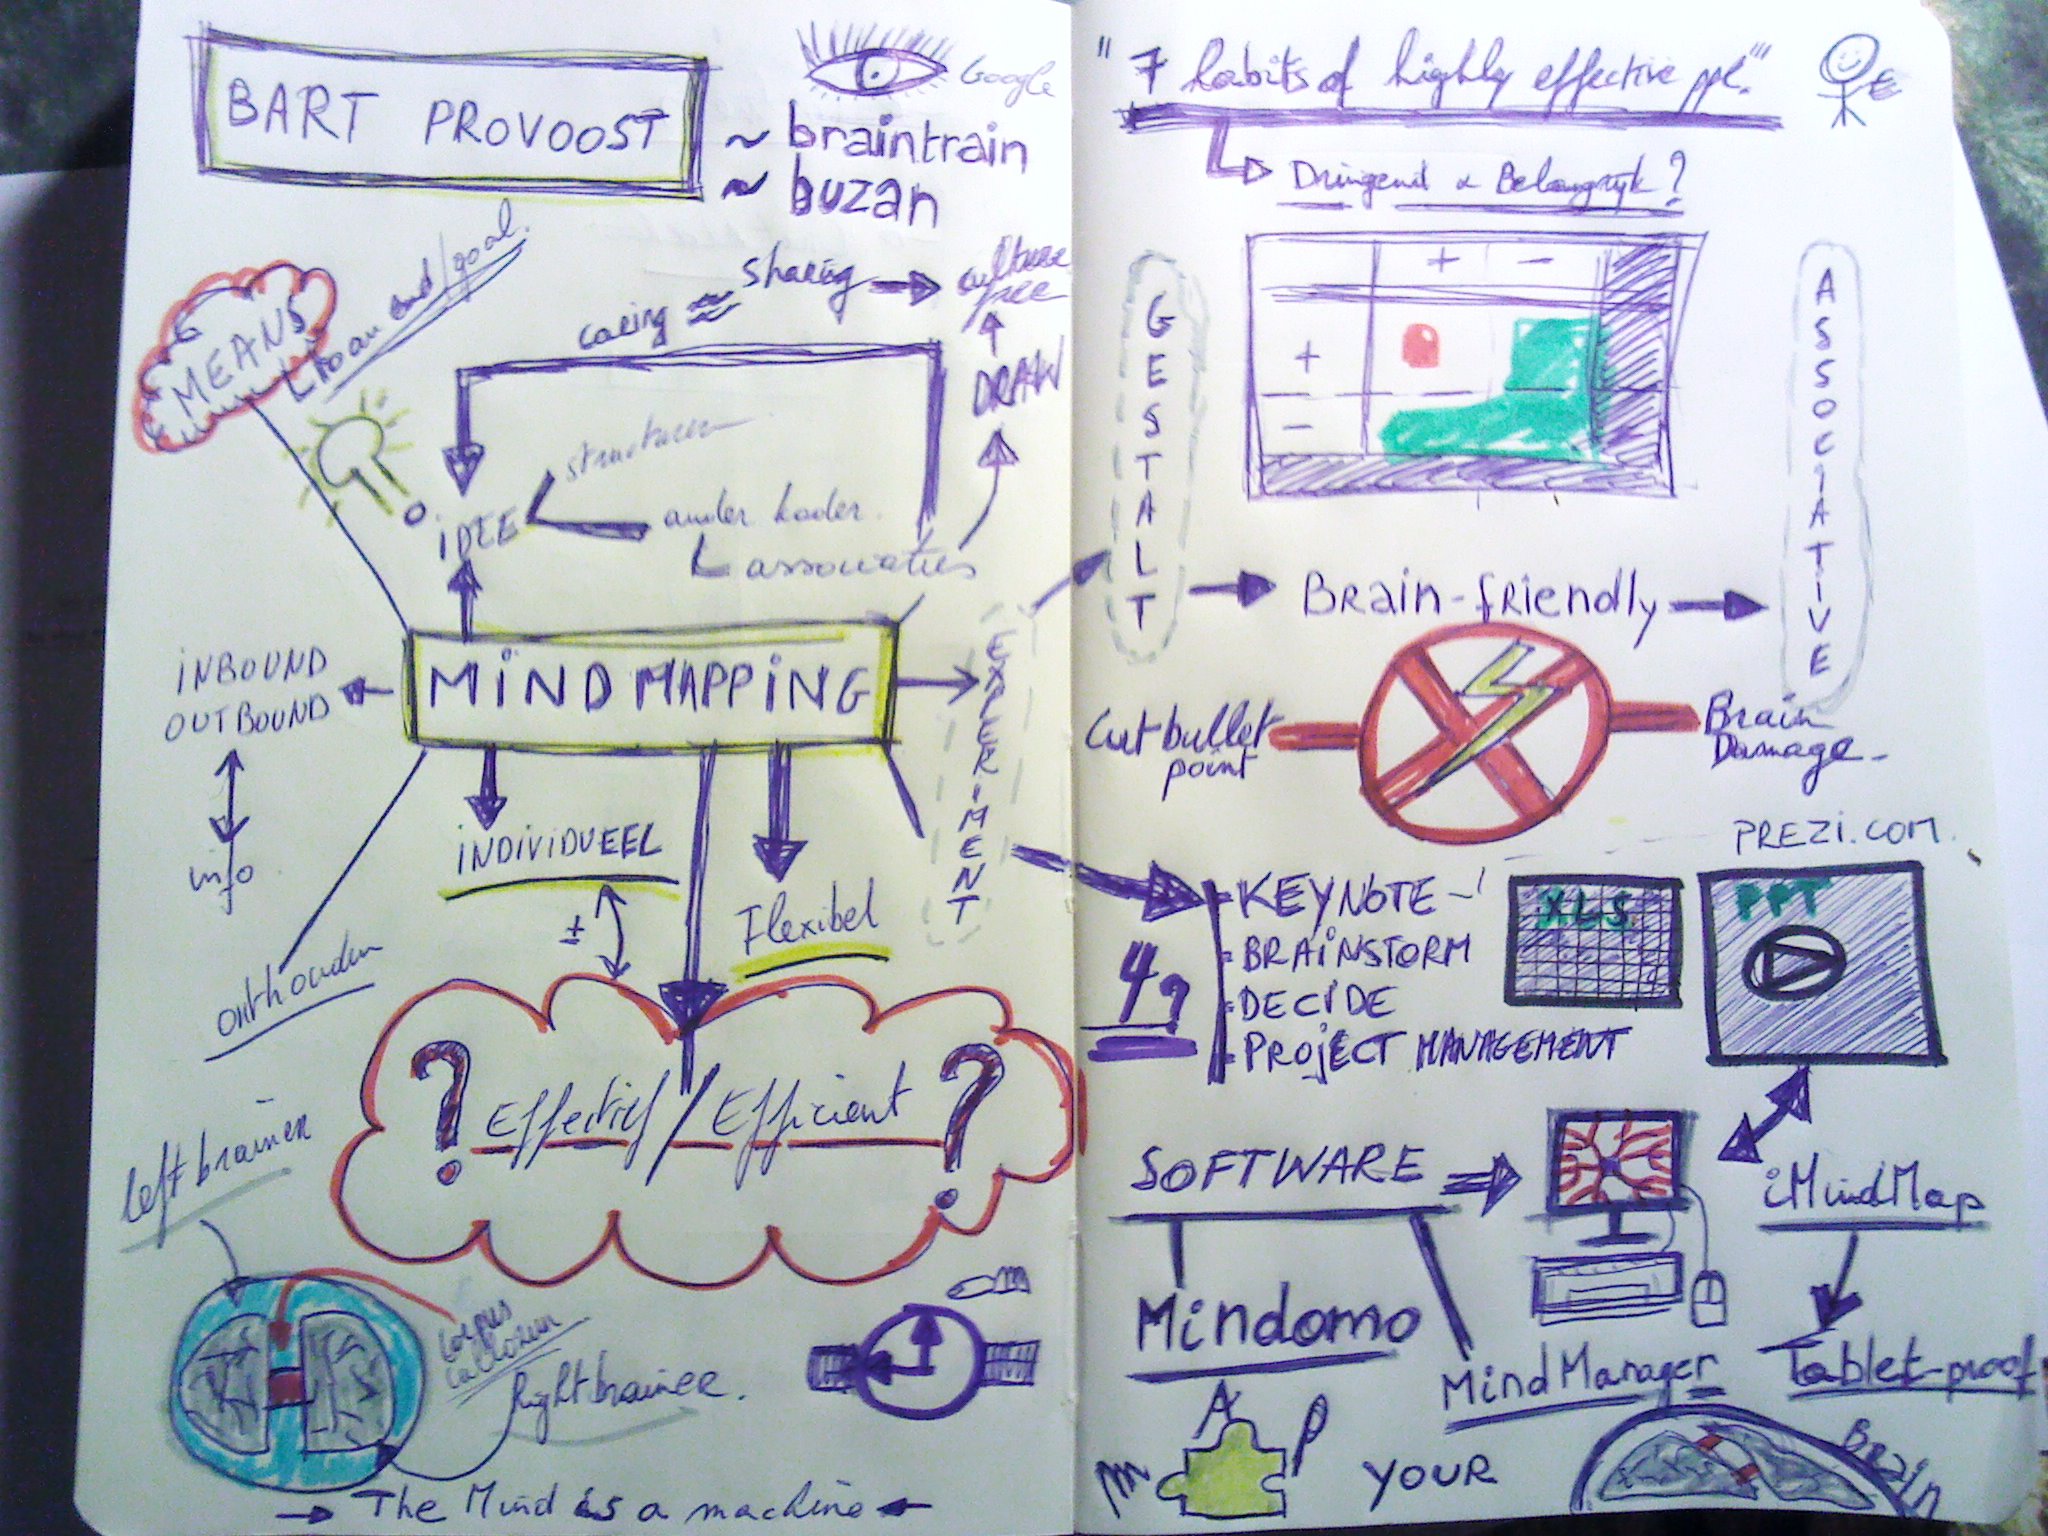 BART PROVOOST
Google
~ braintrain
~ buzan
MEANS
end/goal.
caring ≈ sharing → culture
free
DRAW
structuren
iDEE
ander kader.
associaties
INBOUND
OUTBOUND
info
MiNDMAPPiNG
EXPERiMENT
iNDiViDUEEL
±
Flexibel
onthouden
? Effectief / Efficient ?
left brainer
corpus
callosum
Right brainer.
→ The Mind is a machine ←
"7 habits of highly effective ppl."
Dringend & Belangrijk?
+ -
+
-
GESTALT
ASSOCiATiVE
Brain-friendly
Cut bullet
point
Brain
Damage
PREZI.COM
- KEYNOTE
- BRAiNSTORM
- DECIDE
- PROJECT MANAGEMENT
4
XLS
PPT
SOFTWARE
iMindMap
Mindomo
MindManager
Tablet-proof
MAP YOUR Brain